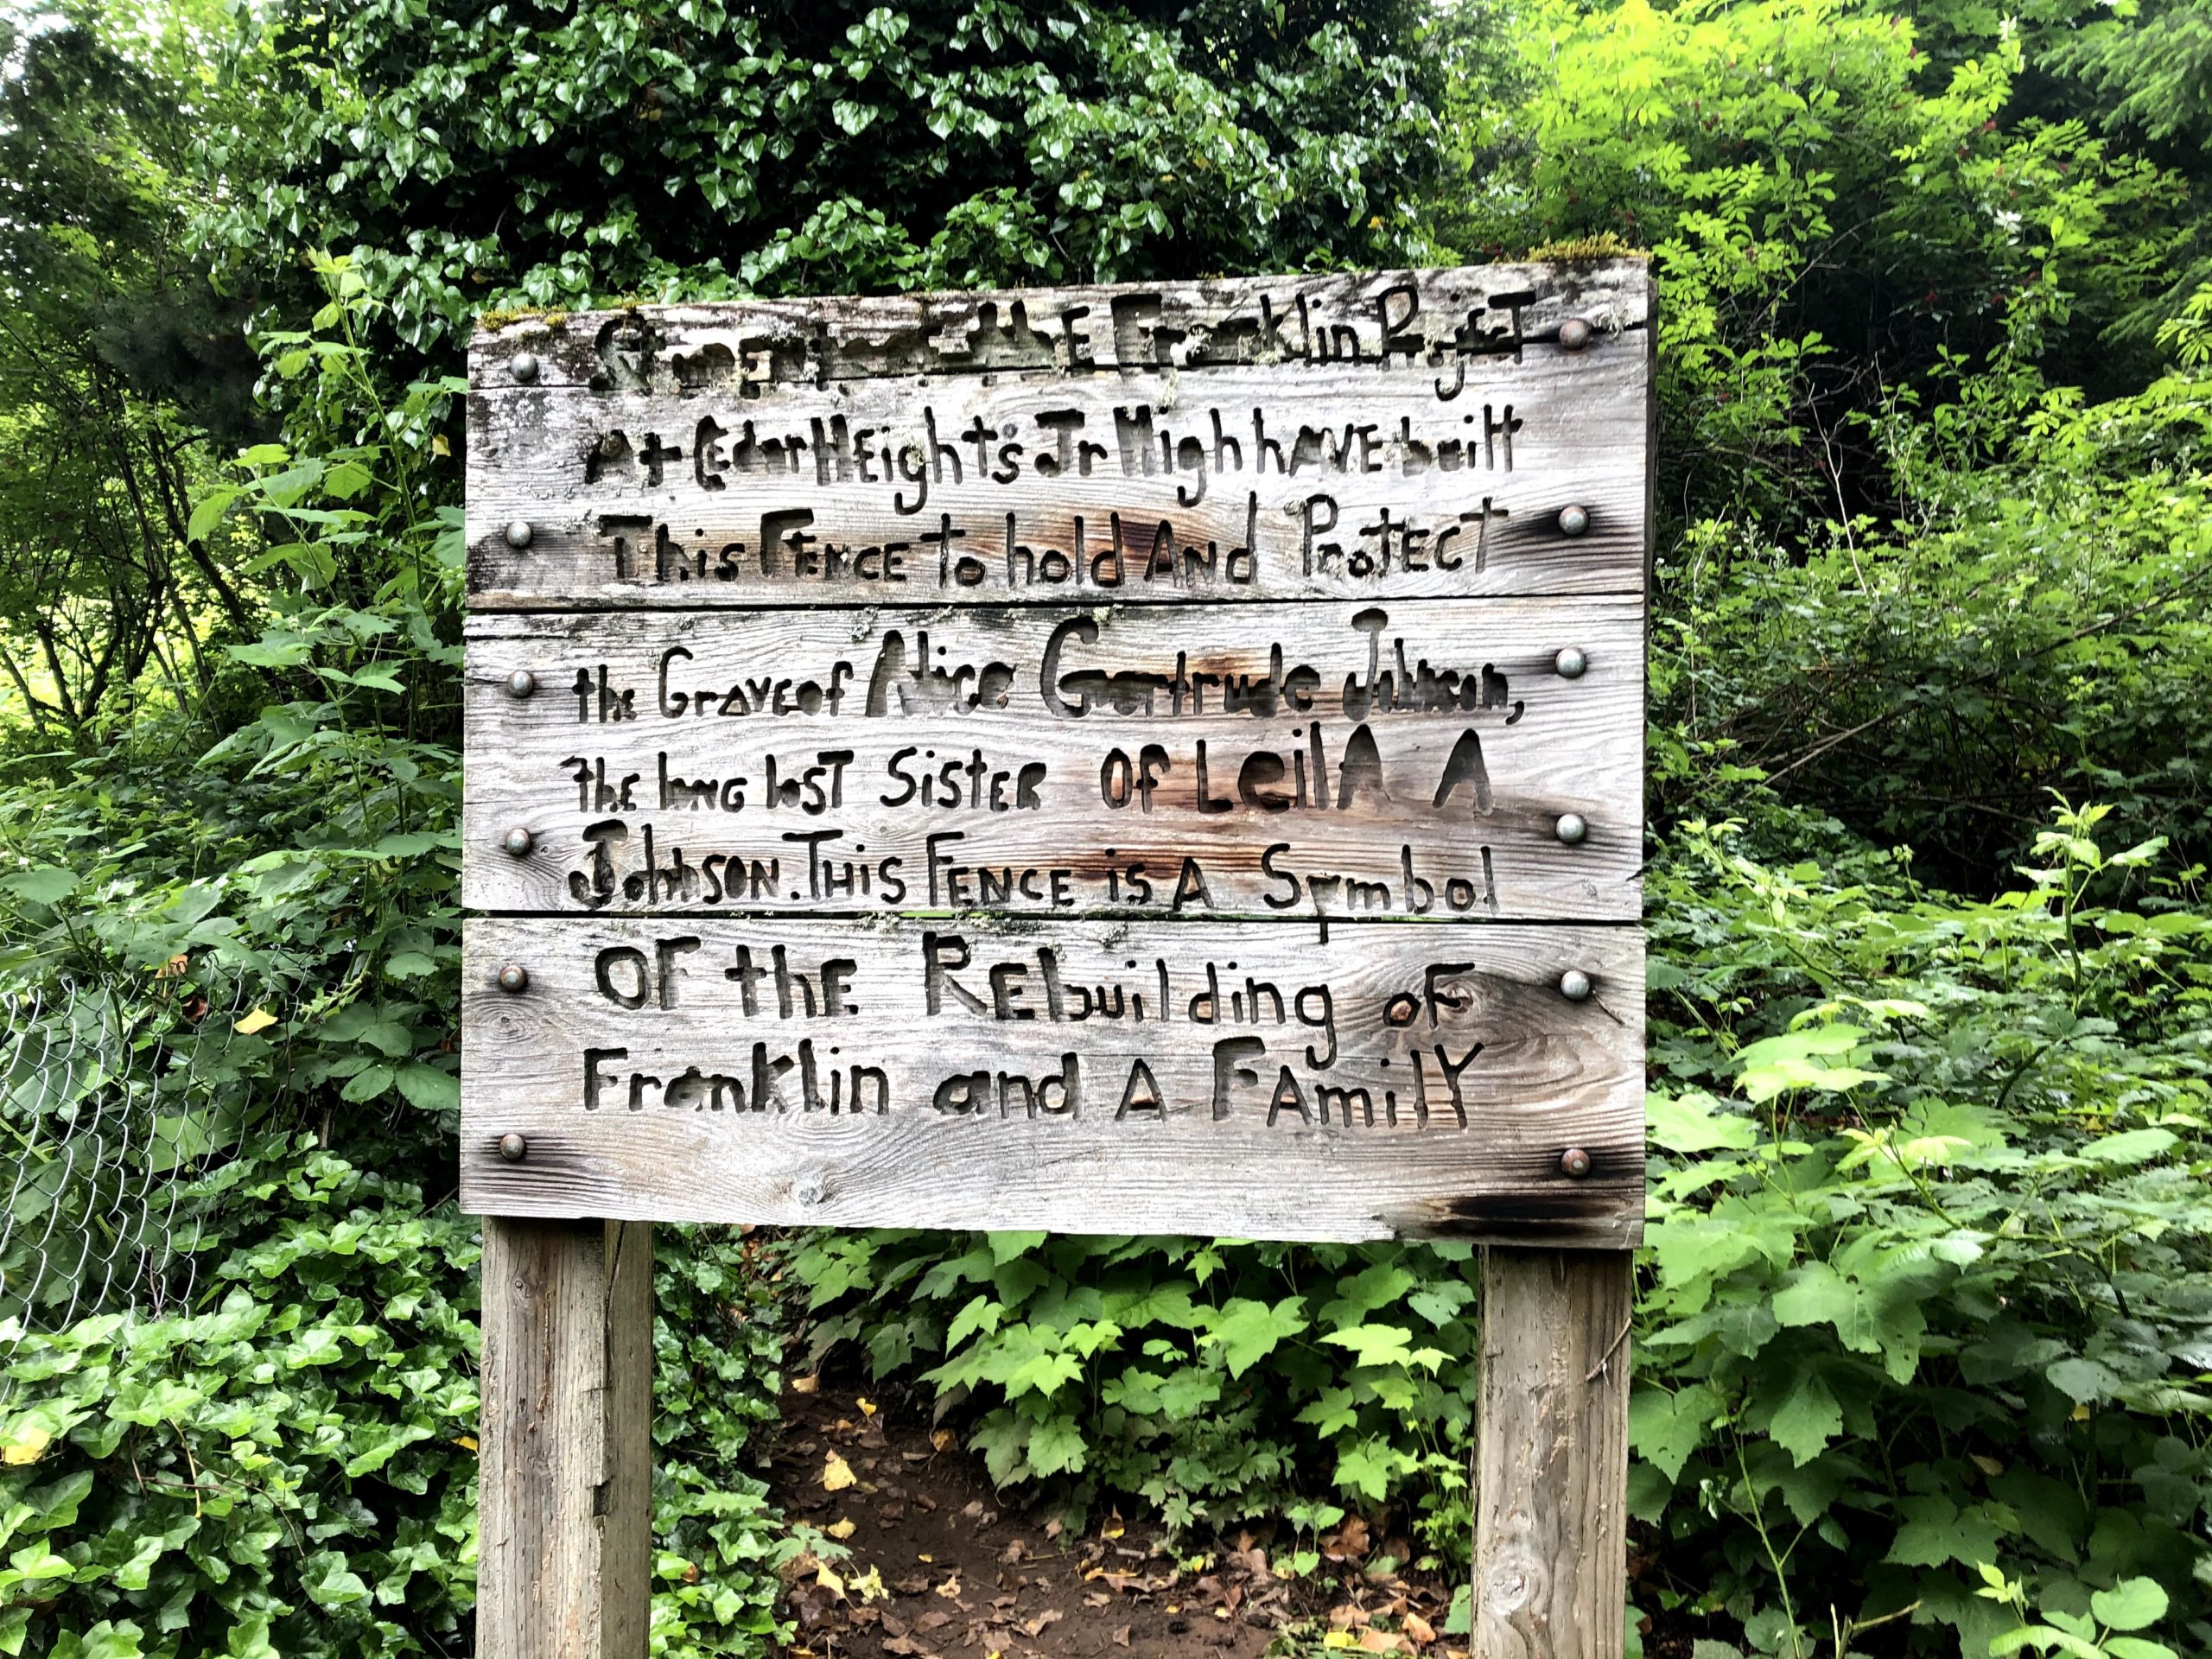 the Franklin Project
At Cedar HEights Jr High hAVE built
This FENCE To hold ANd ProtECT
the GrAVE of Alice Gertrude Johnson,
ThE loNG losT SisTER Of LeilA A
JohnSON. THiS FENCE is A Symbol
OF thE REbuilding oF
Franklin and A FAmilY